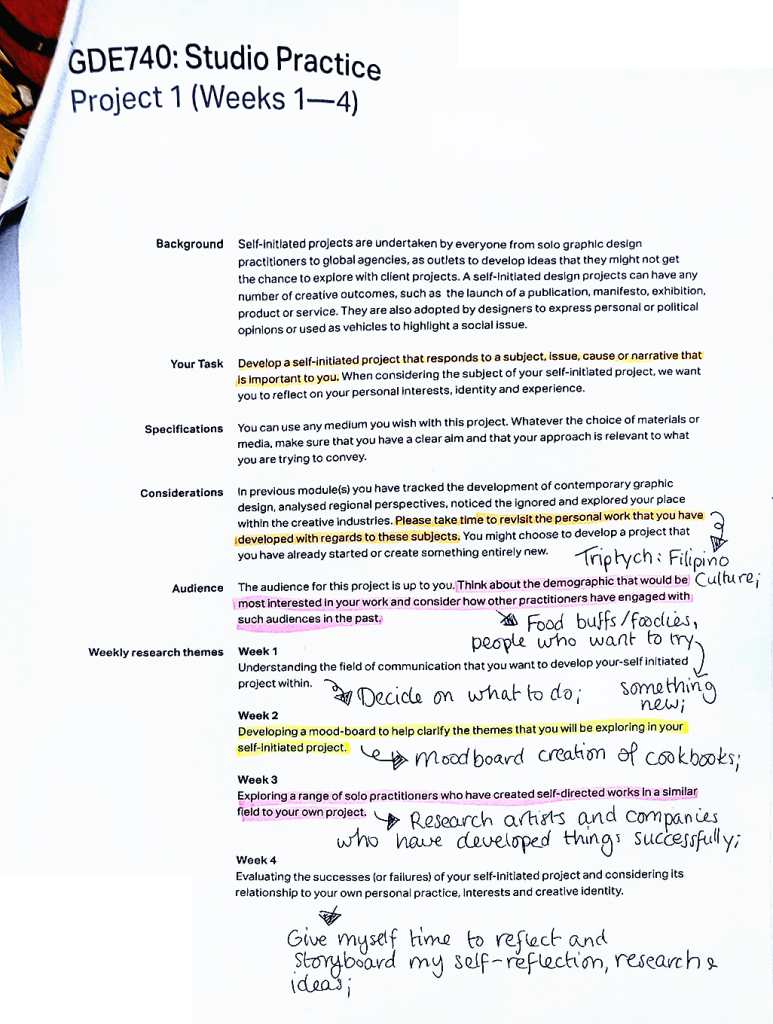 GDE740: Studio Practice
Project 1 (Weeks 1—4)
Background
Self-initiated projects are undertaken by everyone from solo graphic design
practitioners to global agencies, as outlets to develop ideas that they might not get
the chance to explore with client projects. A self-initiated design projects can have any
number of creative outcomes, such as the launch of a publication, manifesto, exhibition,
product or service. They are also adopted by designers to express personal or political
opinions or used as vehicles to highlight a social issue.
Your Task
Develop a self-initiated project that responds to a subject, issue, cause or narrative that
is important to you. When considering the subject of your self-initiated project, we want
you to reflect on your personal interests, identity and experience.
Specifications
You can use any medium you wish with this project. Whatever the choice of materials or
media, make sure that you have a clear aim and that your approach is relevant to what
you are trying to convey.
Considerations
In previous module(s) you have tracked the development of contemporary graphic
design, analysed regional perspectives, noticed the ignored and explored your place
within the creative industries. Please take time to revisit the personal work that you have
developed with regards to these subjects. You might choose to develop a project that
you have already started or create something entirely new.
Triptych: Filipino
Culture;
Audience
The audience for this project is up to you. Think about the demographic that would be
most interested in your work and consider how other practitioners have engaged with
such audiences in the past.
Food buffs/foodies,
people who want to try
something
new;
Weekly research themes
Week 1
Understanding the field of communication that you want to develop your-self initiated
project within.
Decide on what to do;
Week 2
Developing a mood-board to help clarify the themes that you will be exploring in your
self-initiated project.
Moodboard creation of cookbooks;
Week 3
Exploring a range of solo practitioners who have created self-directed works in a similar
field to your own project.
Research artists and companies
who have developed things successfully;
Week 4
Evaluating the successes (or failures) of your self-initiated project and considering its
relationship to your own personal practice, interests and creative identity.
Give myself time to reflect and
storyboard my self-reflection, research &
ideas;